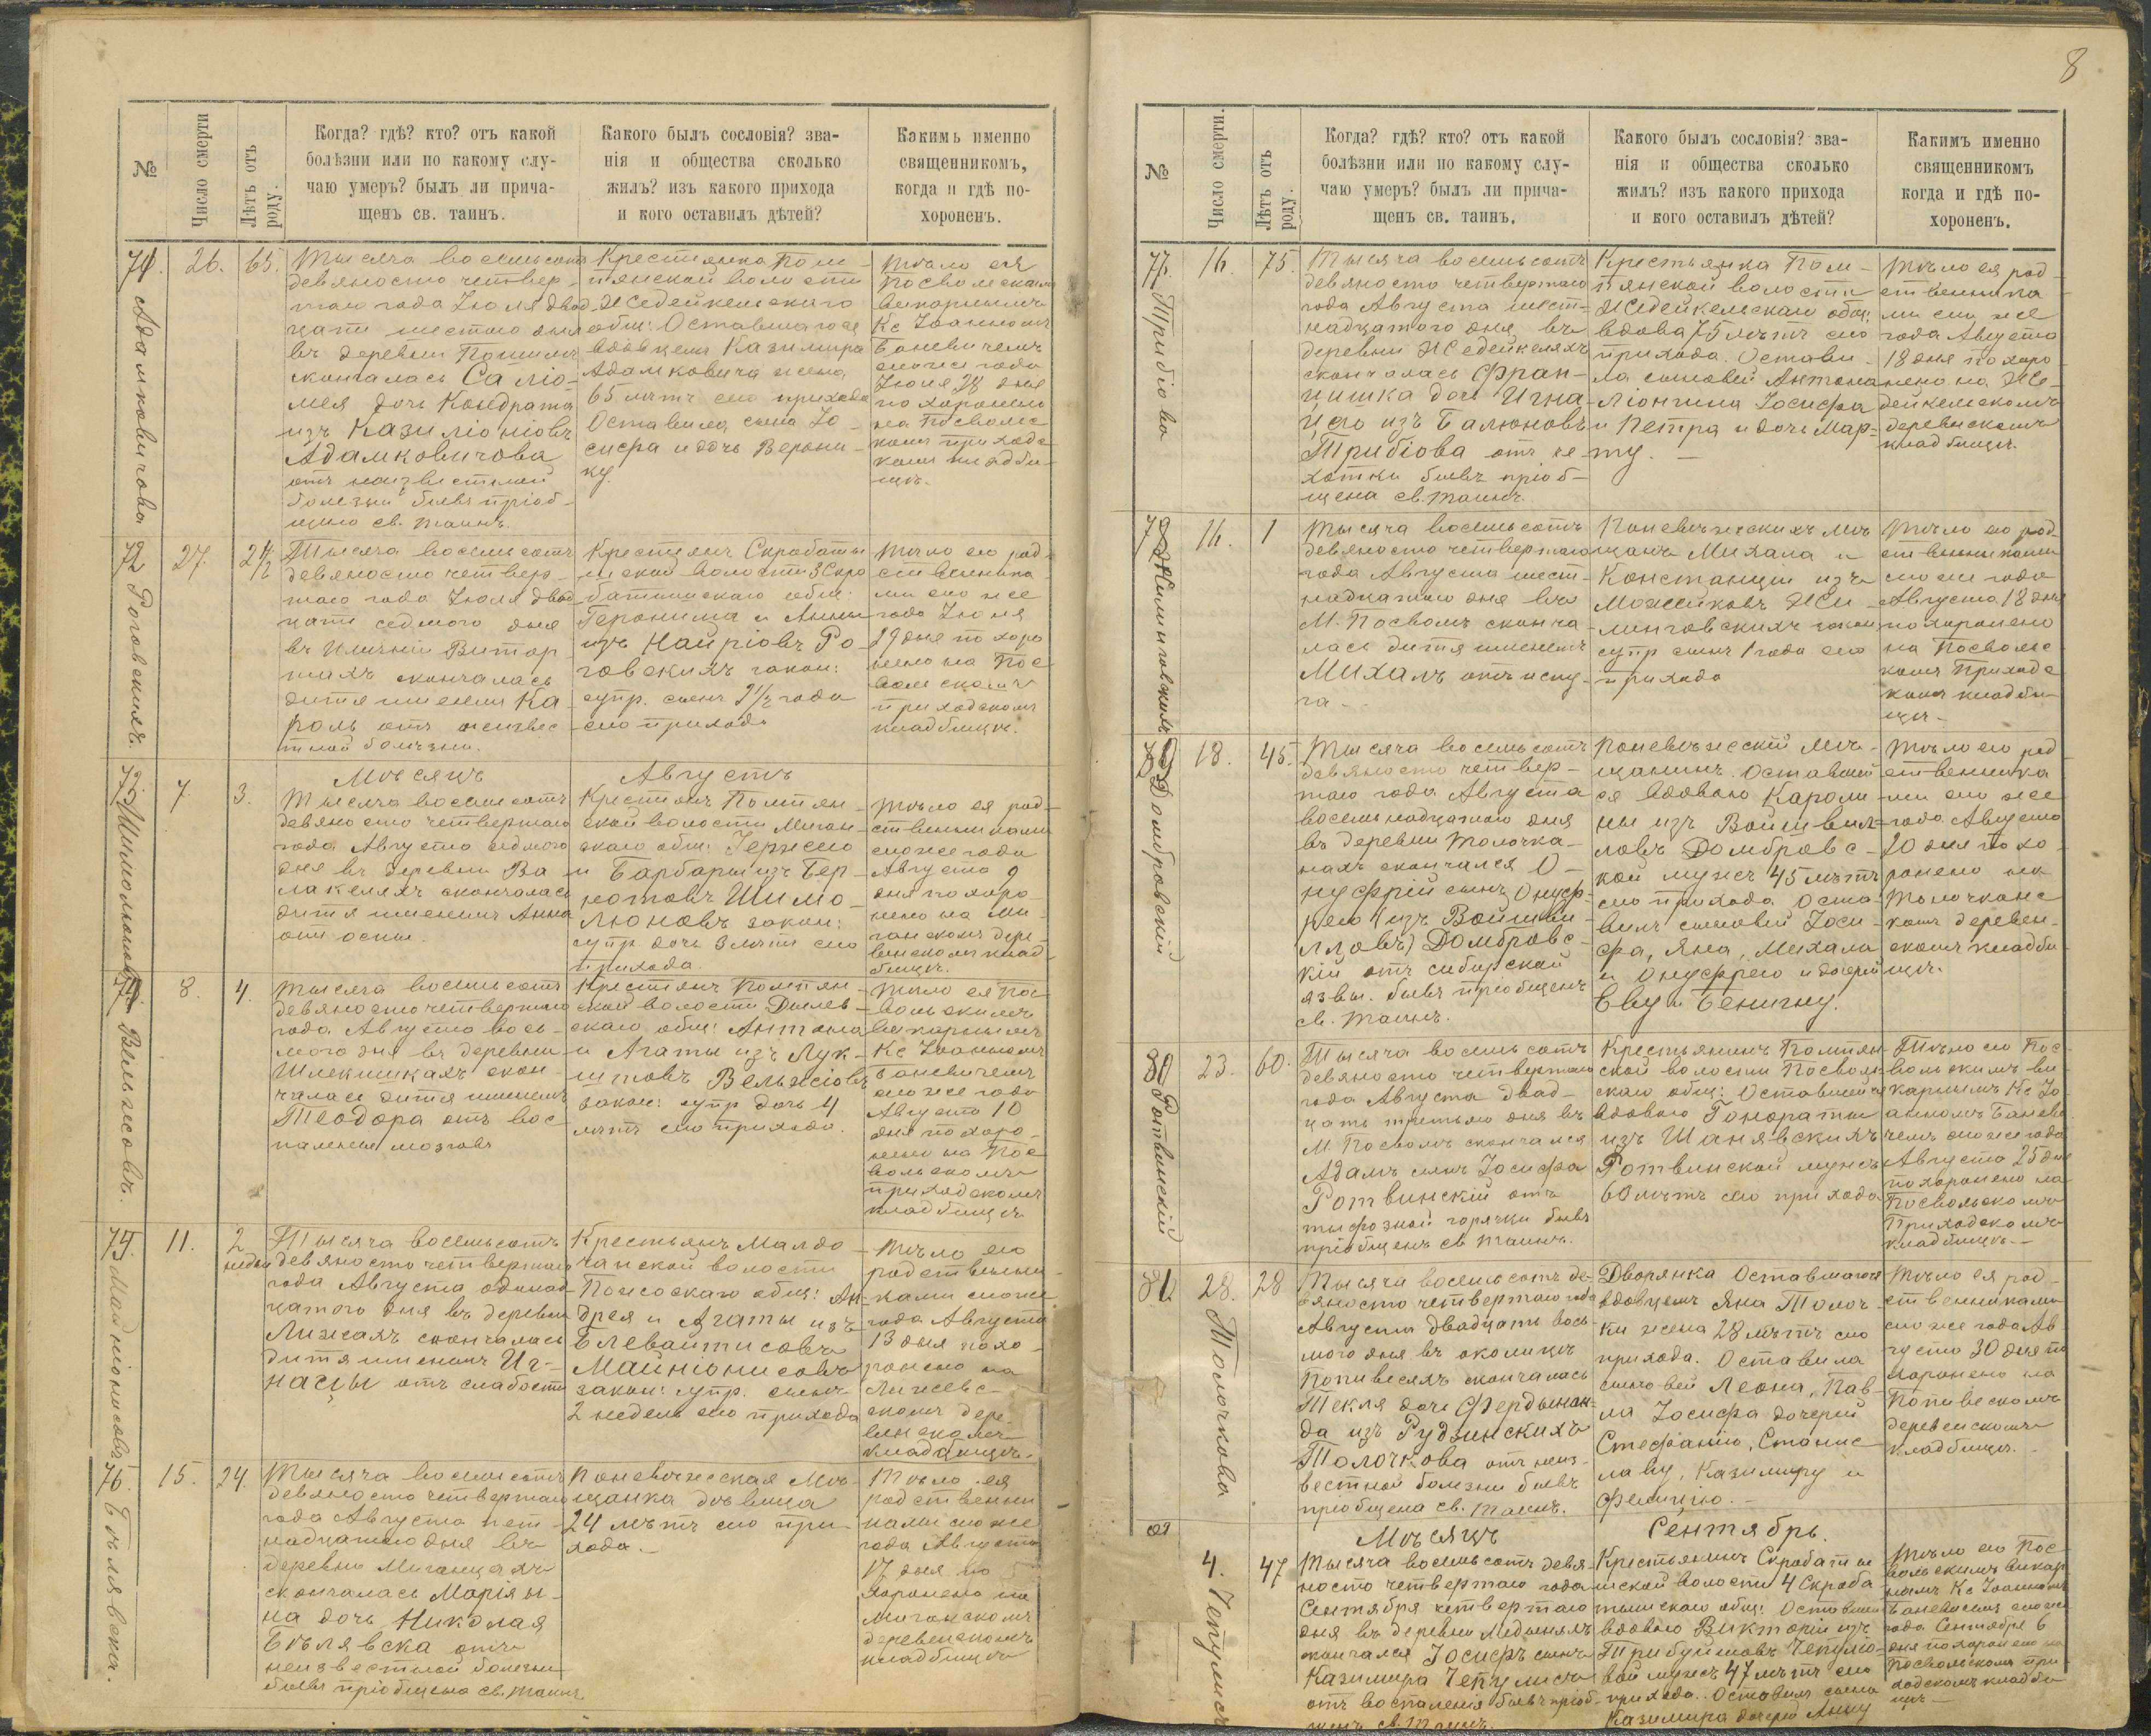 8
№
Число смерти
Лѣтъ отъ роду.
Когда? гдѣ? кто? отъ какой
болѣзни или по какому слу-
чаю умеръ? былъ ли прича-
щенъ св. таинъ.
Какого былъ сословія? зва-
нія и общества сколько
жилъ? изъ какого прихода
и кого оставилъ дѣтей?
Какимъ именно
священникомъ,
когда и гдѣ по-
хороненъ.
71.
Адамковичова
26.
65.
Тысяча восемьсотъ
девяносто четвер-
таго года Іюля двад-
цати шестаго дня
въ деревни
скончалась Саліо-
мея дочь Кондрата
изъ Казиліоніовъ
Адамковичова
отъ неизвестной
болезни бывъ пріоб-
щена св. таинъ.
Крестянка Помп-
янской волости
Жедейкельскаго
общ: Оставшагося
вдовцемъ Казимира
Адамковича жена
65 лѣтъ сего прихода
Оставила сына Іо-
сифа и дочь Верони-
ку.
Тѣло ея
Посвольскимъ
викарнымъ
Кс Іоанномъ
Баневичемъ
сегоже года
Іюля 28 дня
похоронено
на Посволь-
комъ приходс-
комъ кладби-
щѣ.
72
Роговскихъ.
27.
2 1/2
Тысяча восемьсотъ
девяносто четвер-
таго года Іюля двад-
цати седмого дня
въ имѣніи Витар-
тахъ скончалась
дитя именем Ка-
роль отъ неизвес-
тной болѣзни.
Крестянъ Скробаты-
шской волости 3 Скро
батишскаго общ:
Геронима и Анны
изъ Найріовъ Ро-
говскихъ закон:
супр. сынъ 2 1/2 года
сего прихода
Тѣло его род-
ственника-
ми сего же
года Іюля
29 дня похоро
нено на Пос-
вольскомъ
приходскомъ
кладбищѣ.
Мѣсяцъ
Августъ
73
Шимолюновъ
7.
3.
Тысяча восемьсотъ
девяносто четвертаго
года Августа седмого
дня въ деревни Ва
лакеляхъ скончалась
дитя именемъ Анна
отъ оспы.
Крестянъ Помпян-
ской волости Мигон-
скаго общ:
и Барбары изъ Бер-
нотовъ Шимо-
люновъ закон:
супр дочь 3 лѣтъ сего
прихода.
Тѣло ея род-
ственниками
сегоже года
Августа 9
дня похоро-
нено на Ми-
ганскомъ дере-
венскомъ клад-
бищѣ.
74
Вельжсовъ.
8.
4.
Тысяча восемьсотъ
девяносто четвертаго
года Августа вось-
мого дня въ деревни
Шлекишкахъ скон-
чалась дитя именемъ
Теодора отъ вос-
паленія мозговъ
Крестянъ Помпян-
ской волости
скаго общ: Антона
и Агаты изъ Лук-
штовъ Вельжсіовъ
закон: супр дочь 4
лѣтъ сего прихода.
Тѣло ея Пос-
вольскимъ
викарнымъ
Кс Іоанномъ
Баневичемъ
сегоже года
Августа 10
дня похоро-
нено на Пос-
вольскомъ
приходскомъ
кладбищѣ
75.
Майніонисовъ
11.
2
недѣли
Тысяча восемьсотъ
девяносто четвертаго
года Августа одинад-
цатого дня въ деревни
Лижсахъ скончалась
дитя именемъ Иг-
нацы отъ слабости
Крестьянъ Малдо-
чанской волости
общ: Ан-
дрея и Агаты изъ
Блевайтисовъ
Майніонисовъ
закон: супр. сынъ
2 недель сего прихода
Тѣло его
родственни-
ками сегоже
года Августа
13 дня похо-
ронено на
скомъ дере-
венскомъ
кладбищѣ.
76.
Бѣлявска.
15.
24.
Тысяча восемьсотъ
девяносто четвертаго
года Августа пят-
надцатаго дня въ
деревни Миганцахъ
скончалась Марія
на дочь Николая
Бѣлявска отъ
неизвестной болезни
бывъ пріобщена св. таинъ
Поневѣжская Мѣ-
щанка дѣвица
24 лѣтъ сего при-
хода.
Тѣло ея
родственни
ками сегоже
года Августа
17 дня по
хоронено на
Миганскомъ
деревенскомъ
кладбищѣ
№
Число смерти.
Лѣтъ отъ роду.
Когда? гдѣ? кто? отъ какой
болѣзни или по какому слу-
чаю умеръ? былъ ли прича-
щенъ св. таинъ.
Какого былъ сословія? зва-
нія и общества сколько
жилъ? изъ какого прихода
и кого оставилъ дѣтей?
Какимъ именно
священникомъ
когда и гдѣ по-
хороненъ.
77.
Трибіова
16.
75.
Тысяча восемьсотъ
девяносто четвертаго
года Августа шест-
надцатого дня въ
деревни Жедейкеляхъ
скончалась Фран-
цишка дочь Игна-
цего изъ Балюновъ
Трибіова отъ че-
хотки бывъ пріоб-
щена св. таинъ.
Крестьянка Пом-
пянской волости
Жедейкельскаго общ:
вдова 75 лѣтъ сего
прихода. Остави-
ла сыновей Антона
Люнгина Іосифа
и Петра и дочь Мар-
ту.
Тѣло ея род-
ственника
ми сего же
года Августа
18 дня похоро
нено на Же-
дейкельскомъ
деревенскомъ
кладбищѣ.
78
Жилинговскихъ
16.
1
Тысяча восемьсотъ
девяносто четвертаго
года Августа шест-
надцатаго дня въ
М. Посволѣ сконча-
лась дитя именемъ
Михалъ отъ испу-
га.
Поневѣжскихъ мѣ-
щанъ Михала и
Констанціи изъ
Можейковъ Жи-
линговскихъ закон:
супр сынъ 1 года сего
прихода
Тѣло его род-
ственниками
сегоже года
Августа 18 дня
похоронено
на Посволь-
комъ Приходс
комъ кладби-
щѣ.
79
Домбровскій
18.
45.
Тысяча восемьсотъ
девяносто четвер-
таго года Августа
восемьнадцатаго дня
въ деревни Толочка-
нахъ скончался О-
нуфрій сынъ Онуф-
рего (изъ Войшви-
лловъ) Домбровс-
кій отъ сибирской
язвы. бывъ пріобщенъ
св. таинъ.
Поневѣжскій мѣ-
щанинъ. Оставшей
ся вдовою Кароли
ны изъ Войшвил-
ловъ Домбровс-
кой мужъ 45 лѣтъ
сего прихода Оста-
вилъ сыновей Іоси-
фа, Яна, Михала
и Онуфрего и дочерей
Еву и Бенигну.
Тѣло его род
ственника
ми сего же
года Августа
20 дня похо-
ронено на
Толочканс
комъ деревен-
скомъ кладби
щѣ.
80
Ротвинскій
23.
60.
Тысяча восемьсотъ
девяносто четвертаго
года Августа двад-
цать третьяго дня въ
М. Посволѣ скончался
Адамъ сынъ Іосифа
Ротвинскій отъ
тифозной горячки бывъ
пріобщенъ св таинъ.
Крестьянинъ Помпян-
ской волости Посволь-
скаго общ: Оставшейся
вдовою Гонораты
изъ Шанявскихъ
Ротвинской мужъ
60 лѣтъ сего прихода
Тѣло его Пос-
вольскимъ ви-
карнымъ Кс Іо
анномъ Баневи
чемъ сегоже года
Августа 25 дня
похоронено на
Посвольскомъ
Приходскомъ
кладбищѣ.
81.
Толочкова
28.
28
Тысяча восемьсотъ де-
вяносто четвертаго года
Августа двадцать вось-
мого дня въ околицѣ
Попивесяхъ скончалась
Текля дочь Фердынан-
да изъ Рудзинскихъ
Толочкова отъ неиз-
вестной болезни бывъ
пріобщена св. таинъ.
Дворянка Оставшагося
вдовцемъ Яна Толоч-
ки жена 28 лѣтъ сего
прихода. Оставила
сыновей Леона, Пав-
ла Іосифа дочерей
Стефанію, Станис
лаву, Казимиру и
Фелицію.
Тѣло ея род-
ственниками
сего же года Ав
густа 30 дня по
хоронено на
Попивескомъ
деревенскомъ
кладбищѣ.
Мѣсяцъ
Сентябрь.
Чепулисъ
4.
47
Тысяча восемьсотъ девя-
носто четвертаго года
Сентября четвертаго
дня въ деревни
скончался Іосифъ сынъ
Казимира Чепулисъ
отъ воспаленія бывъ пріоб-
щенъ св. таинъ.
Крестьянинъ Скробаты
шской волости 4 Скроба
тышскаго общ: Оставшей
вдовою Викторіи изъ
Трибуйшовъ Чепуліо-
вой мужъ 47 лѣтъ сего
прихода. Оставилъ сына
Казимира дочерей Анну
Тѣло его Пос-
вольскимъ викар
нымъ Кс Іоанномъ
Баневичемъ сегоже
года Сентября 6
дня похоронено на
Посвольскомъ при
ходскомъ кладби
щѣ.